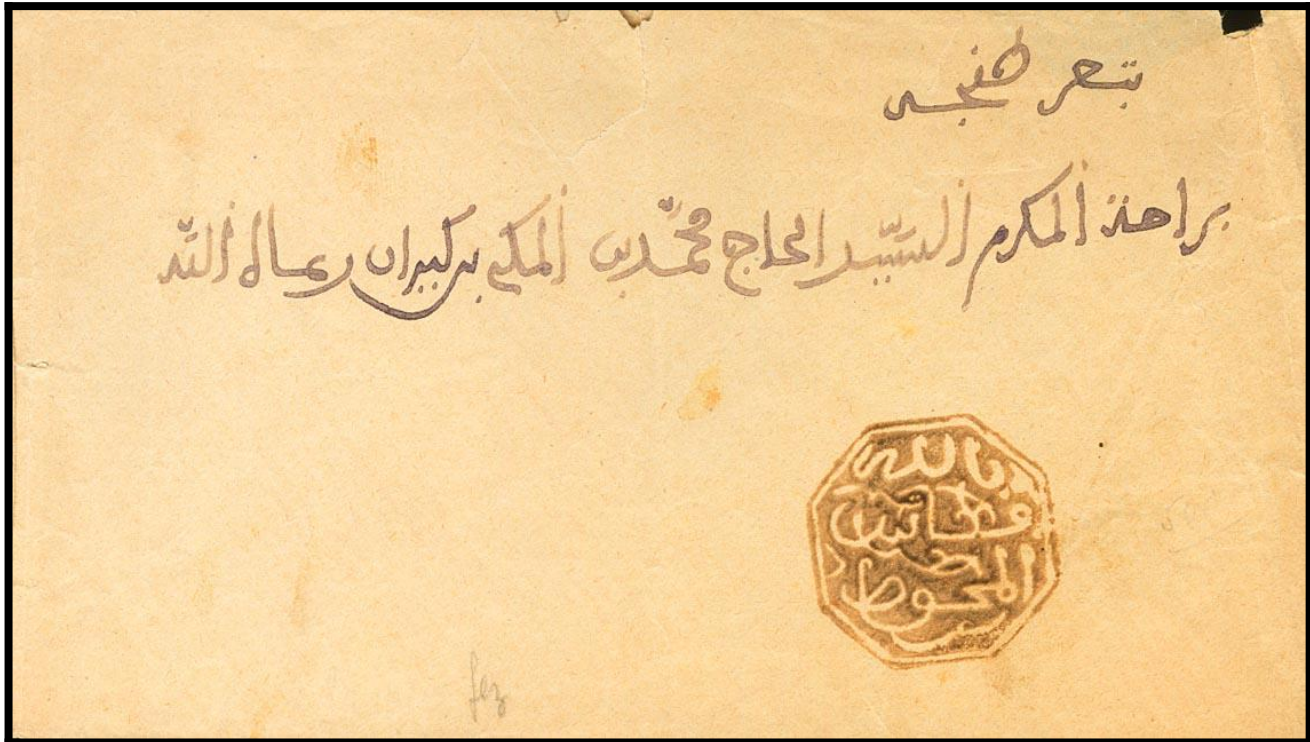 بثغر طنجة
براحة المكرم السيّد الحاج محمّد بن المكي بن كيران رعاه اللّه
بالله
فاس
المحوط
fez